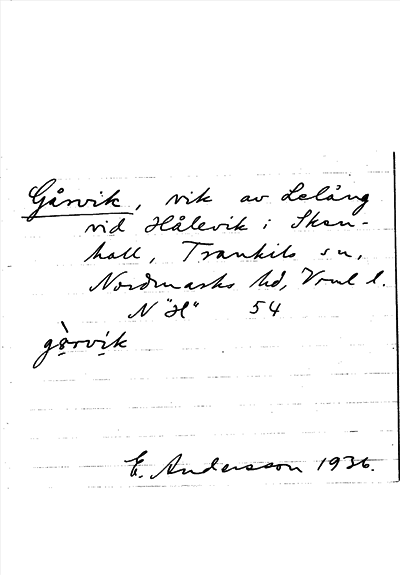 Gårvik, vik av Lelång
vid Hålevik i Sken-
hall, Trankils sn,
Nordmarks hd, Vrml l.
N "H" 54
gò̤rvi̤k
E. Andersson 1936.